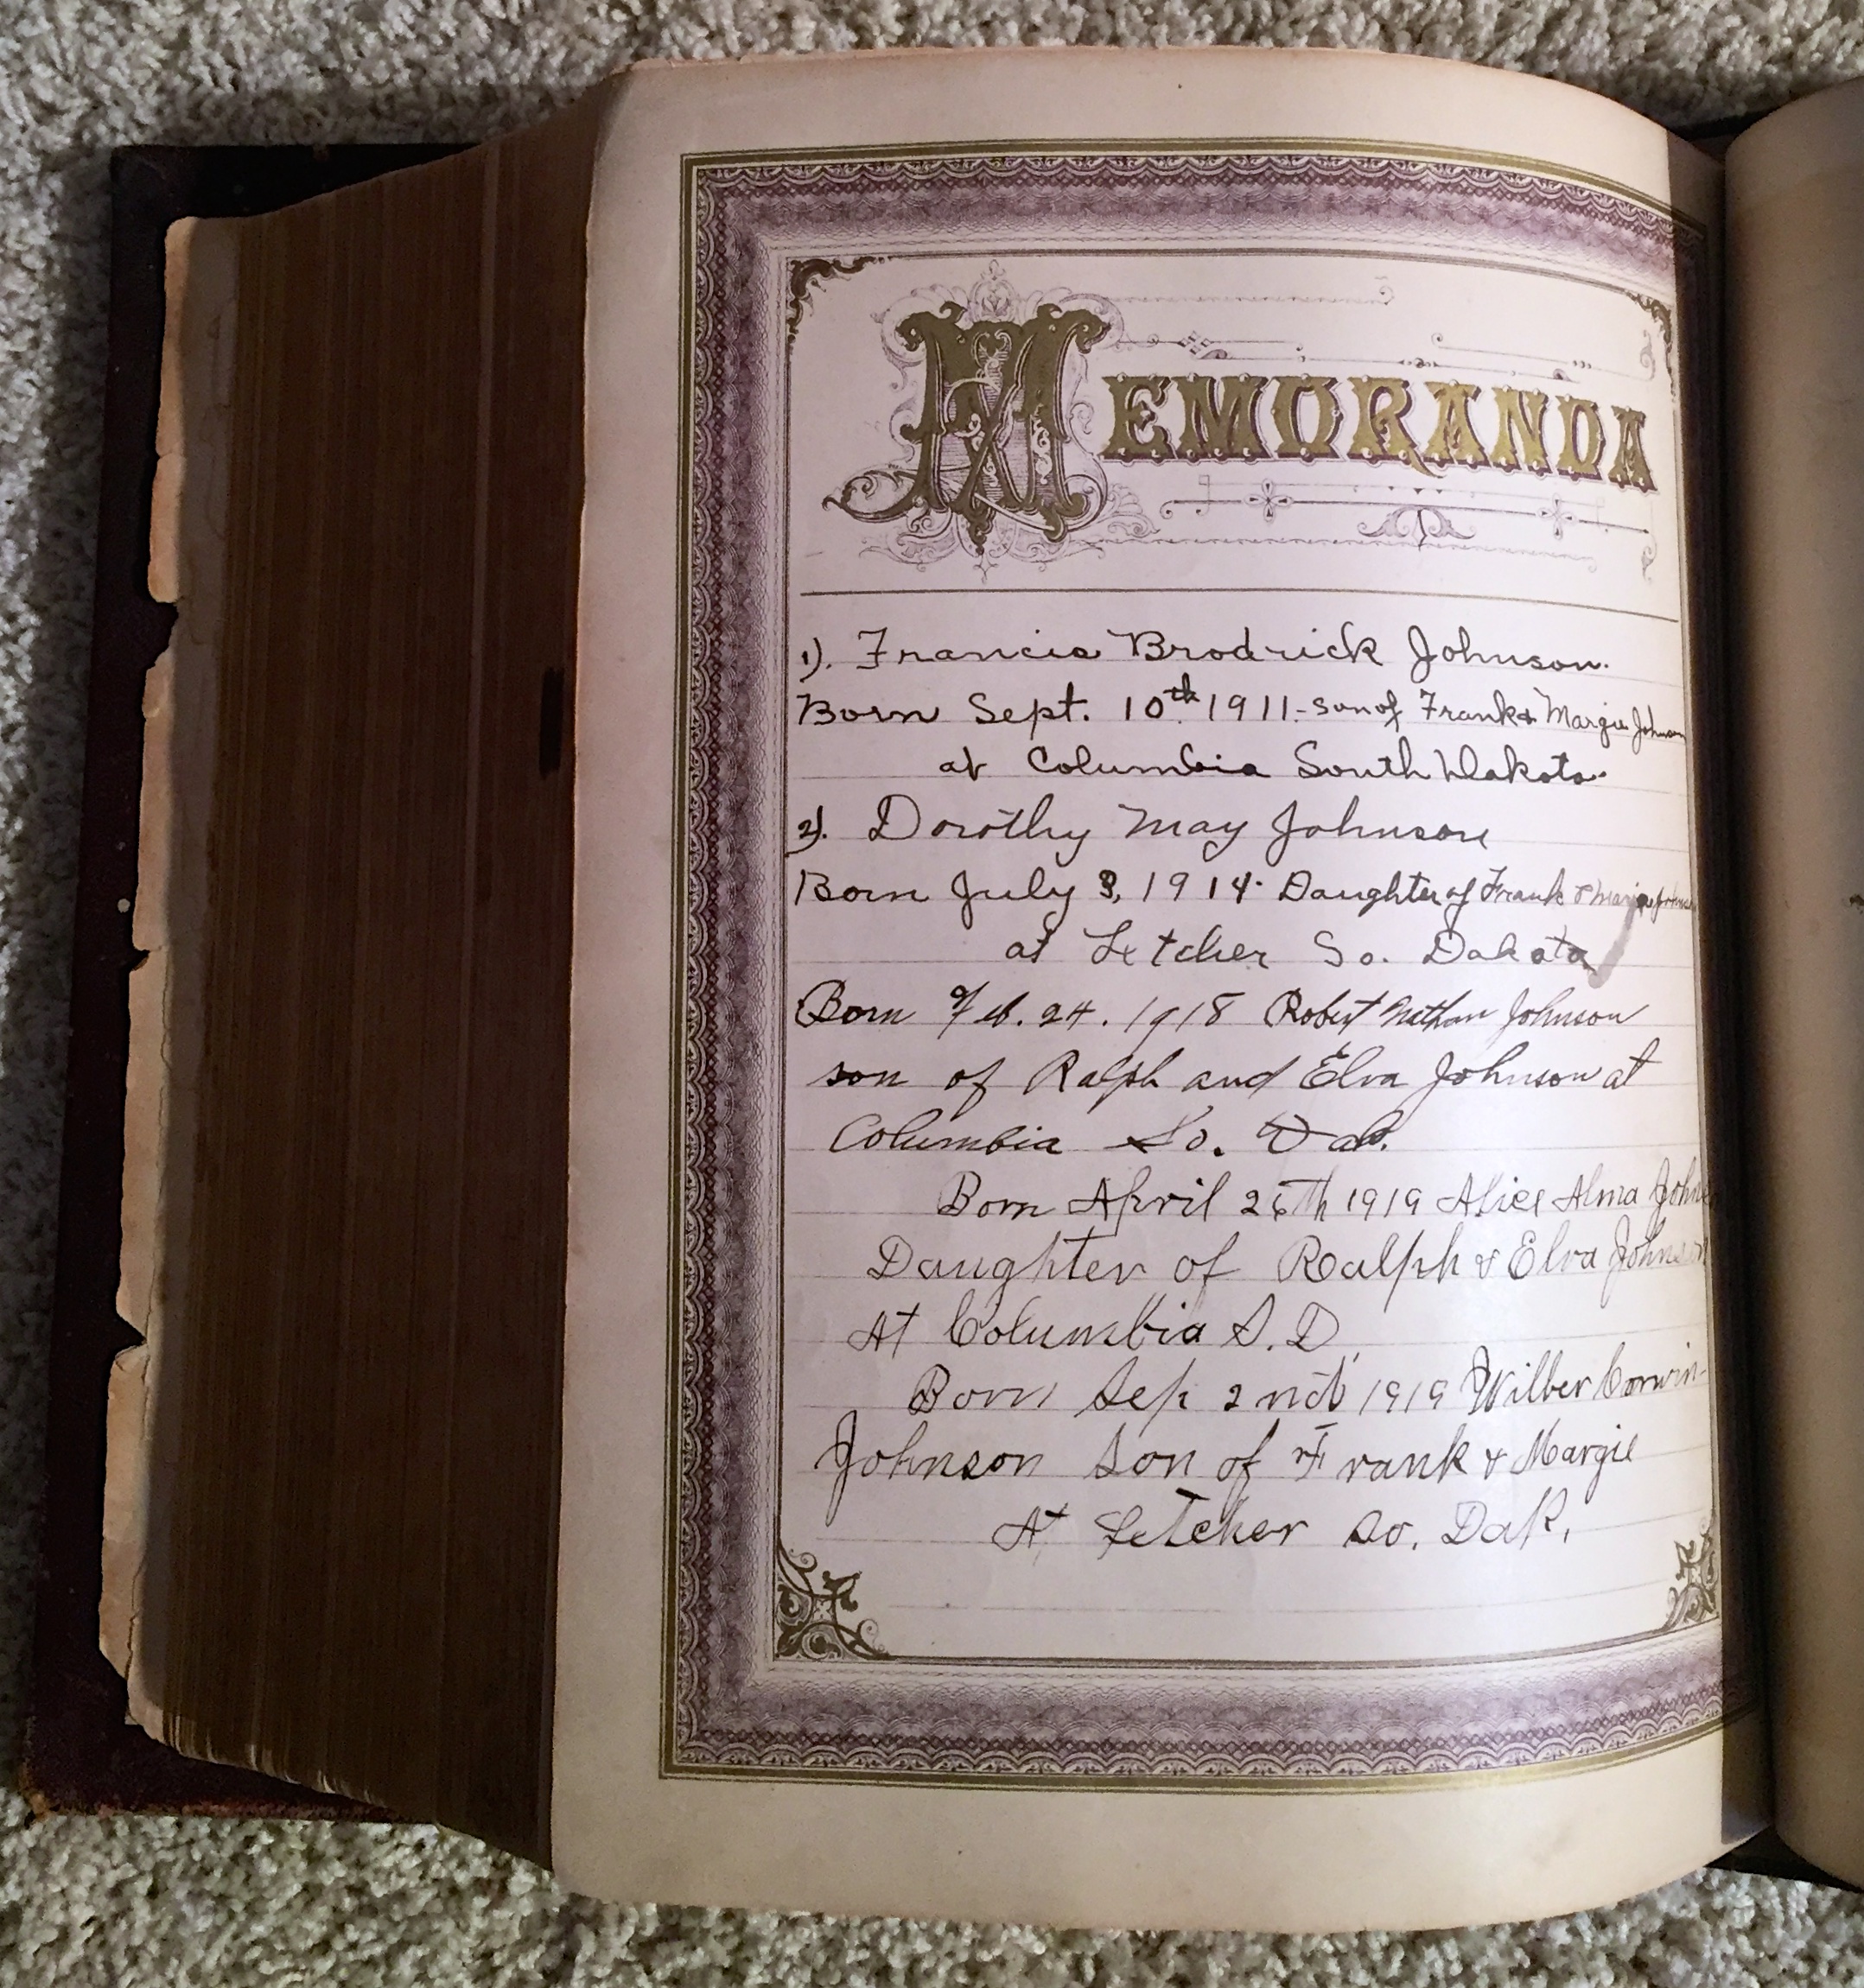 MEMORANDA
1). Francis Brodrick Johnson.
Born Sept. 10th 1911.- son of Frank & Margie Johnson
at Columbia South Dakota.
2). Dorothy May Johnson
Born July 3, 1914. Daughter of Frank & Margie Johnson
at Letcher So. Dakota
Born Feb. 24. 1918 Robert Nathan Johnson
son of Ralph and Elva Johnson at
Columbia So. Dak.
Born April 26th 1919 Alice Alma Johns
Daughter of Ralph & Elva Johnson
At Columbia S.D.
Born Sep 2nd 1919 Wilber Corwin-
Johnson Son of Frank & Margie
At Letcher So. Dak.